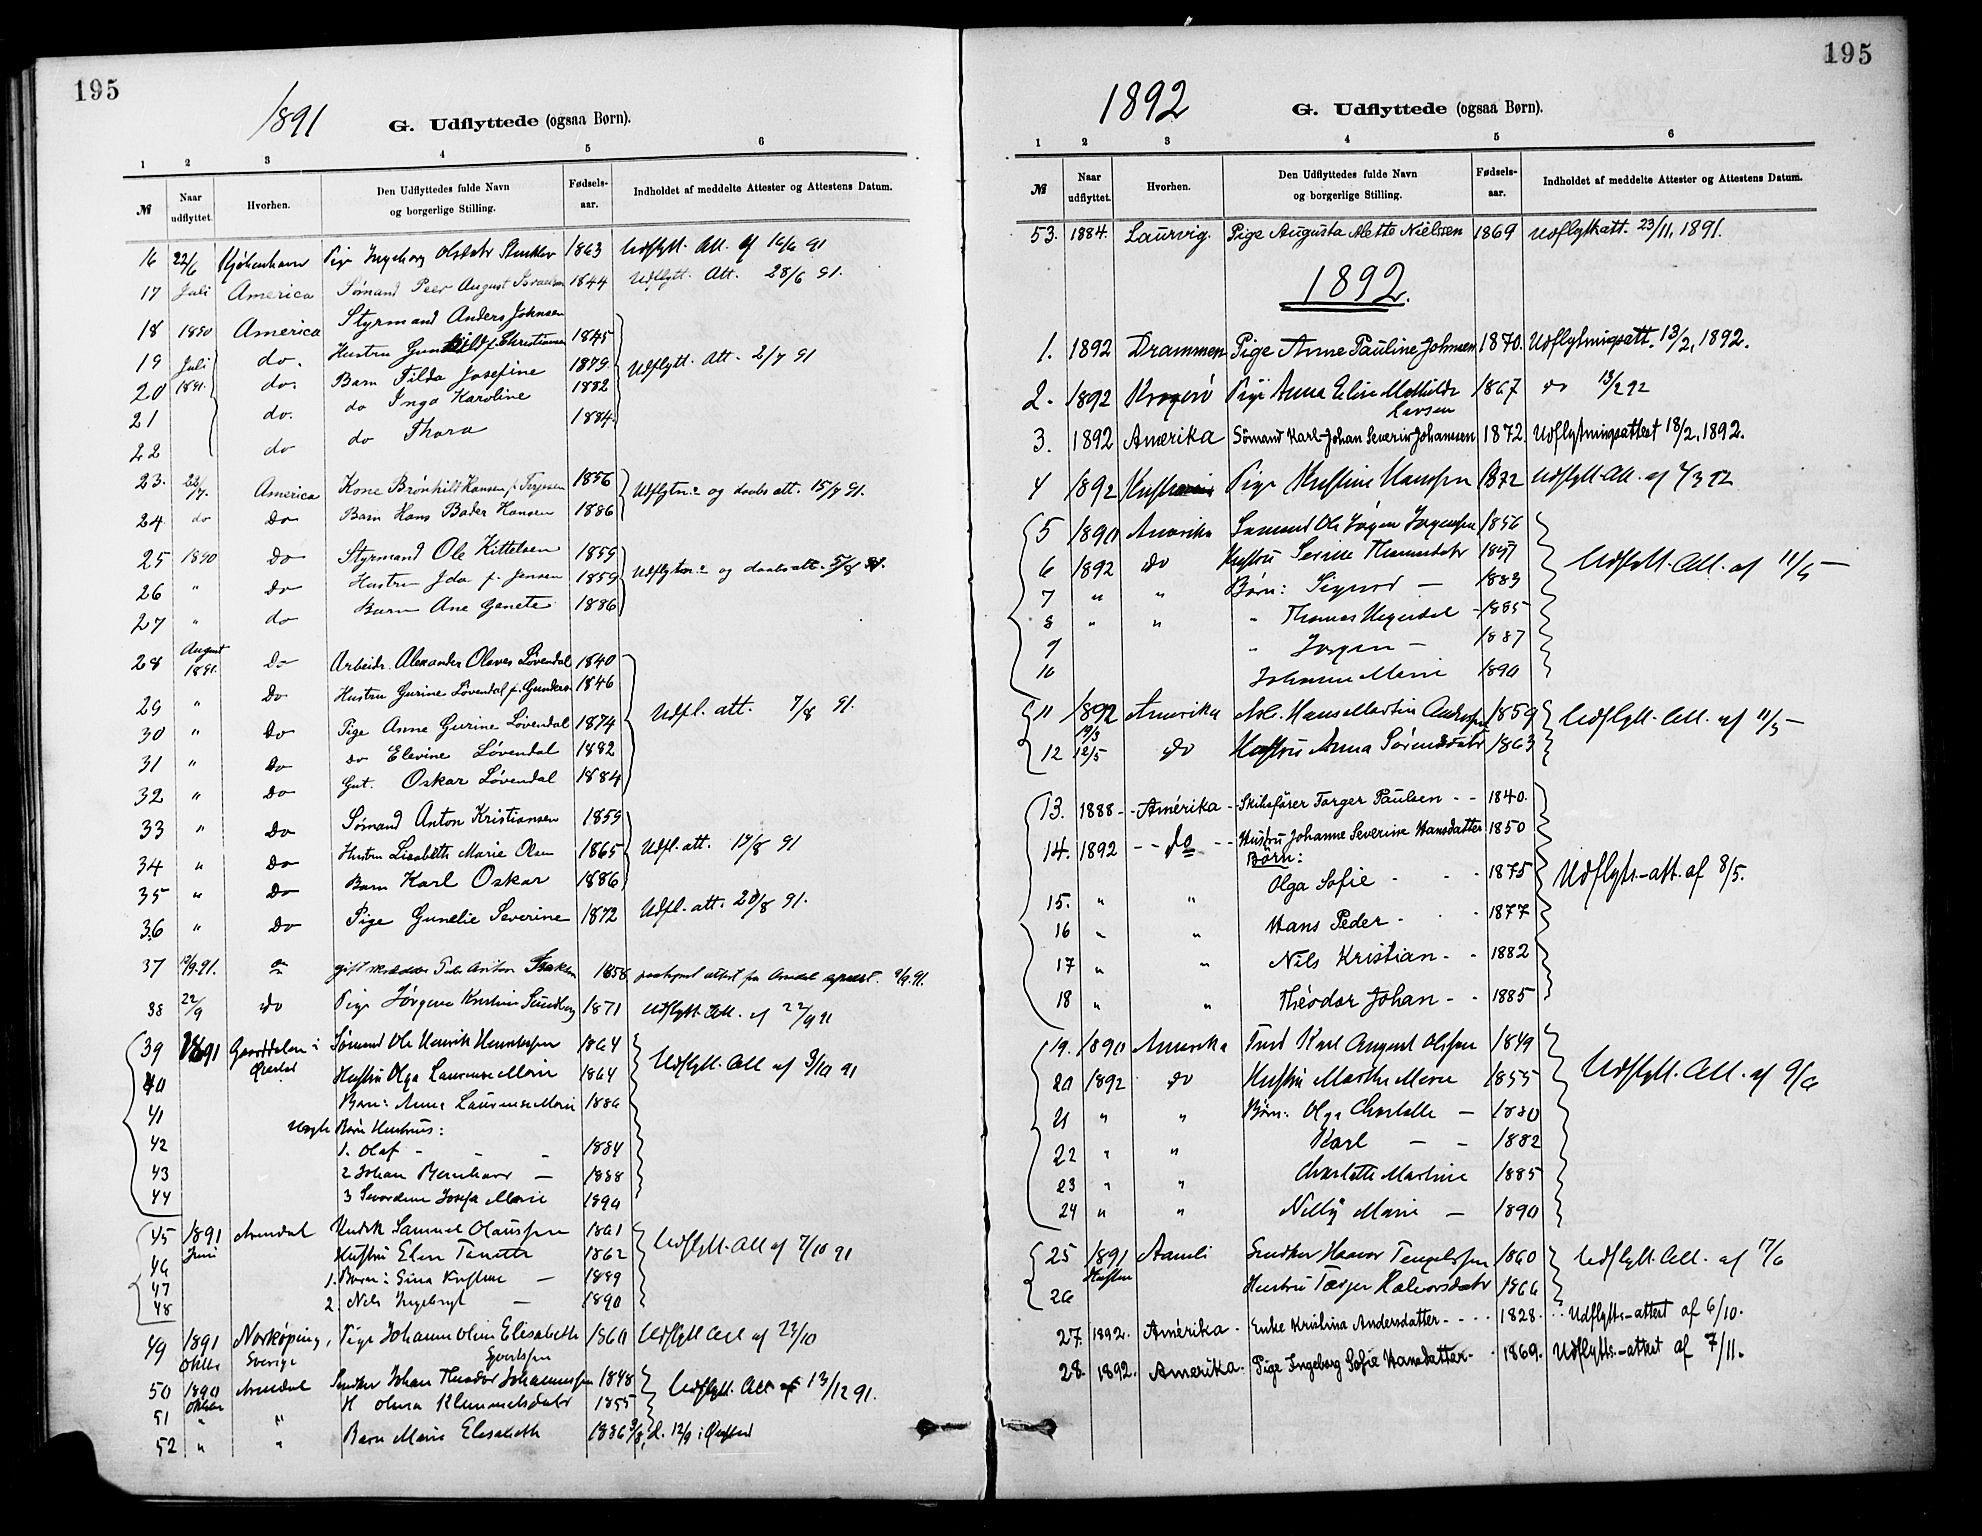 195
1891
G. Udflyttede (ogsaa Børn).
1 2 3 4 5 6
№ Naar udflyttet. Hvorhen. Den Udflyttedes fulde Navn og borgerlige Stilling. Fødsels-aar. Indholdet af meddelte Attester og Attestens Datum.
16 22/6 Kjøbenhavn Pige Ingeborg Olsdatr 1863 Udflytt. Att. af 16/6 91
17 Juli America Sømand Peer August 1844 Udflytt. Att. 28/6 91.
18 1890 America Styrmand Anders Johnsen 1845
19 Juli do. Hustru f. Christiansen 1879
20 1891. do. Barn Tilda Josefine 1882 Udflytt. Att. 2/7 91
21 do. do Inga Karoline 1884.
22 do do Thora
23. 22/7. America Kone Brønhild Hansen f. Terjesen 1856 Udflytn.s og daabs att. 15/7 91.
24. do Do Barn Hans Bader Hansen 1886
25 1890 Do Styrmand Ole Kittelsen 1859
26 " Do Hustru Ida f. Jensen 1859 Udflytn.s og daabs att. 5/8 91.
27 " do Barn Ane Genete 1886
28 August 1891. Do Arbeidr. Alexander Olaves Løvendal 1840
29 " Do Hustru Gurine Løvendal f. Gunders. 1846
30 " Do Pige Anne Gurine Løvendal 1874 Udfl. att. 7/8 91.
31 " Do do Elevine Løvendal 1882
32 " Do Gut. Oskar Løvendal 1884
33 " Do Sømand Anton Kristiansen 1859
34 " Do Hustru Lisabeth Marie Olsen 1865 Udfl. att. 19/8 91
35 " Do Barn Karl Oskar 1886
36 " Do Pige Gunelie Severine 1872 Udfl. att. 20/8 91.
37 19/9 91. gift Anton Isaksen 1858 attest fra 9/9 91.
38 22/9 do Pige Jørgine Kristine Sundberg 1871 Udflytt. Att. af 22/9 91
39 1891 Gaarddalen i Øiestad Sømand Ole Henrik Henriksen 1864
40 Hustru Olga Laurense Marie 1864 Udflytt. Att af 9/10 91
41 Barn: Anna Laurense Marie 1886
Børn Hustrus:
42 1. Olaf - - - 1884
43 2 Johan Bernhard - 1888
44 3 Josefa Marie 1890
45 1891 Juni Arendal Samuel Olaussen 1861
46 Hustru Elen Tonette 1862 Udflytt. Att af 7/10 91
47 1. Børn: Gina Kristine - 1889
48 2. Nils Ingebrigt - 1890
49 1891 Oktbr Norköping, Sverige Pige Johanne Oline Elisabeth Sjvertsen 1860 Udflytt Att af 23/10
50 1890 Oktber Arendal Snedker Johan Theodor Johannessen 1848 Udflytt. Att af 13/12 91.
51 " " H Olava Klemmetsdatr 1855
52 " " Barn Marie Elisabeth 1886 9/8, d. 12/9 i Øiestad
195
1892
G. Udflyttede (ogsaa Børn).
1 2 3 4 5 6
№ Naar udflyttet. Hvorhen. Den Udflyttedes fulde Navn og borgerlige Stilling. Fødsels-aar. Indholdet af meddelte Attester og Attestens Datum.
53. 1884. Laurvig. Pige Augusta Alette Nielssen 1869 Udflyttatt. 23/11, 1891.
1892.
1. 1892 Drammen Pige Anne Pauline Johnsen 1870. Udflytningsatt. 13/2, 1892.
2. 1892 Kragerö Pige Anna Elise Mathilde Larsen 1867 do 13/2 92
3. 1892 Amerika Sömand Karl Johan Severin Johannsen 1872 Udflytningsattest 18/2, 1892.
4 1892 Pige Kristine Hanssen 1872 Udflytt. Att. af 7/3 92
5 1890 Amerika Sømand Ole Jörgen Jørgensen 1856
6 1892 do Hustru Thomasdatr 1857 Udflytt. Att. af 11/5 -
7 " " Børn: Sigurd - 1883
8 " " " Thomas - 1885
9 " Jørgen - 1887
10 Johanne Marie 1890
11 1892 19/3 Amerika Arb. Hans Martin Andersen 1859 Udflytt. Att. af 11/5 -
12 12/5 do Hustru Anna Sørensdatr 1863
13. 1888 - - Amérika - - Skibsfører Torger Paulsen - - 1840.
14. 1892 - - do - - Hustru Johanne Severine Hansdatter 1850
Børn:
15. " " Olga Sofie - - - 1875 Udflytt.-att. af 8/5.
16 " " Hans Peder - - - 1877
17 " " Nils Kristian - - 1882
18 " " Théodor Johan - - 1885
19. 1890 Amerika Karl August Olssen 1849
20 1892 do Hustru Marthe Marie 1855 Udflytt. Att. af 9/6
21 " " Børn: Olga Charlotte - 1880
22 " " Karl - - 1882
23 " " Charlotte Martine 1885
24 " " Nilly Marie - 1890
25 1891 Høsten Aamli Snedker Haavor 1860 Udflytt. Att. af 17/6
26 Hustru Halvorsdatr 1866
27. 1892. Amérika - Enke Kristina Andersdatter - - - - 1828. Udflytts-attest af 6/10.
28. 1892. Amérika - Pige Ingeborg Sofie Hansdatter - - 1869. Udflytts.-attest af 7/11.